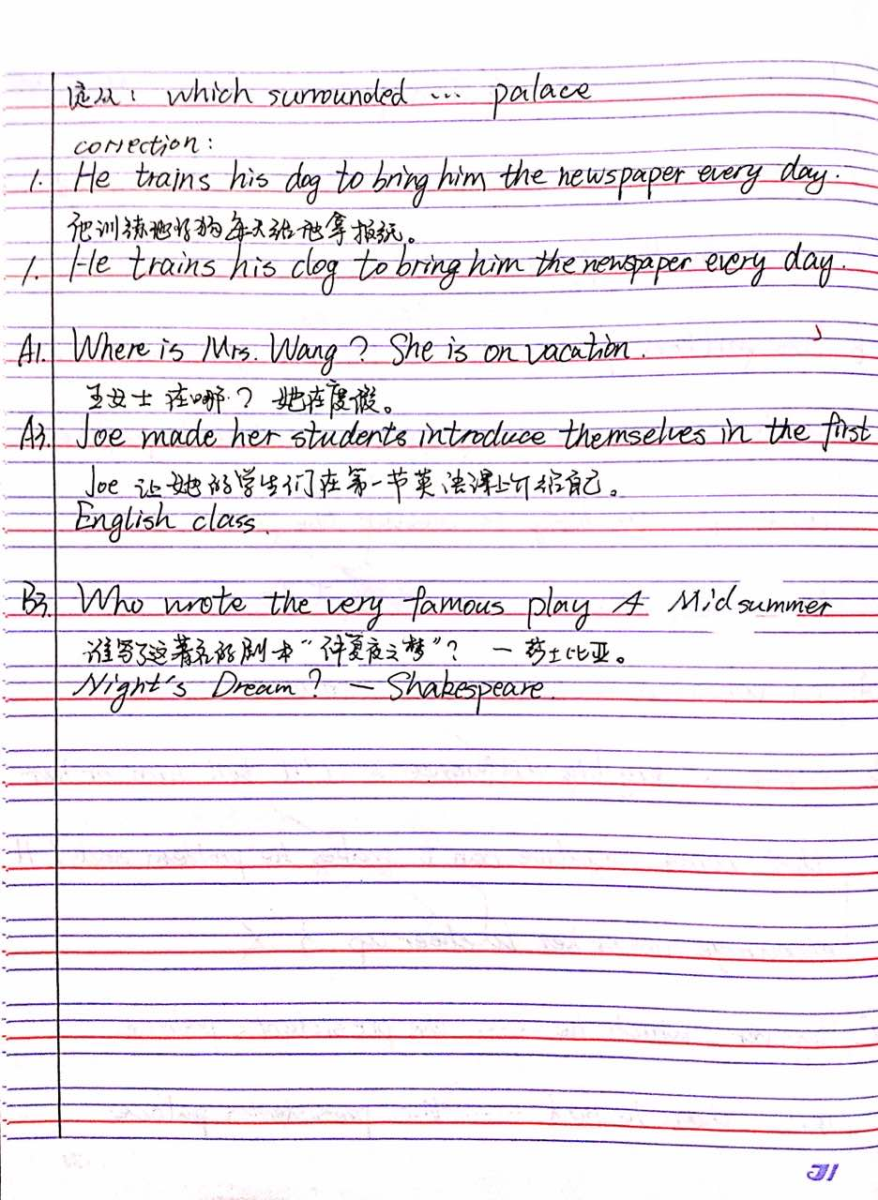 定从: which surrounded ... palace
correction:
1. He trains his dog to bring him the newspaper every day.
他训练他的狗每天给他拿报纸。
1. He trains his dog to bring him the newspaper every day.
A1. Where is Mrs. Wang? She is on vacation.
王女士在哪? 她在度假。
A3. Joe made her students introduce themselves in the first
Joe 让她的学生们在第一节英语课上介绍自己。
English class.
B3. Who wrote the very famous play A Midsummer
谁写了这著名的剧本“仲夏夜之梦”? — 莎士比亚。
Night's Dream? — Shakespeare.